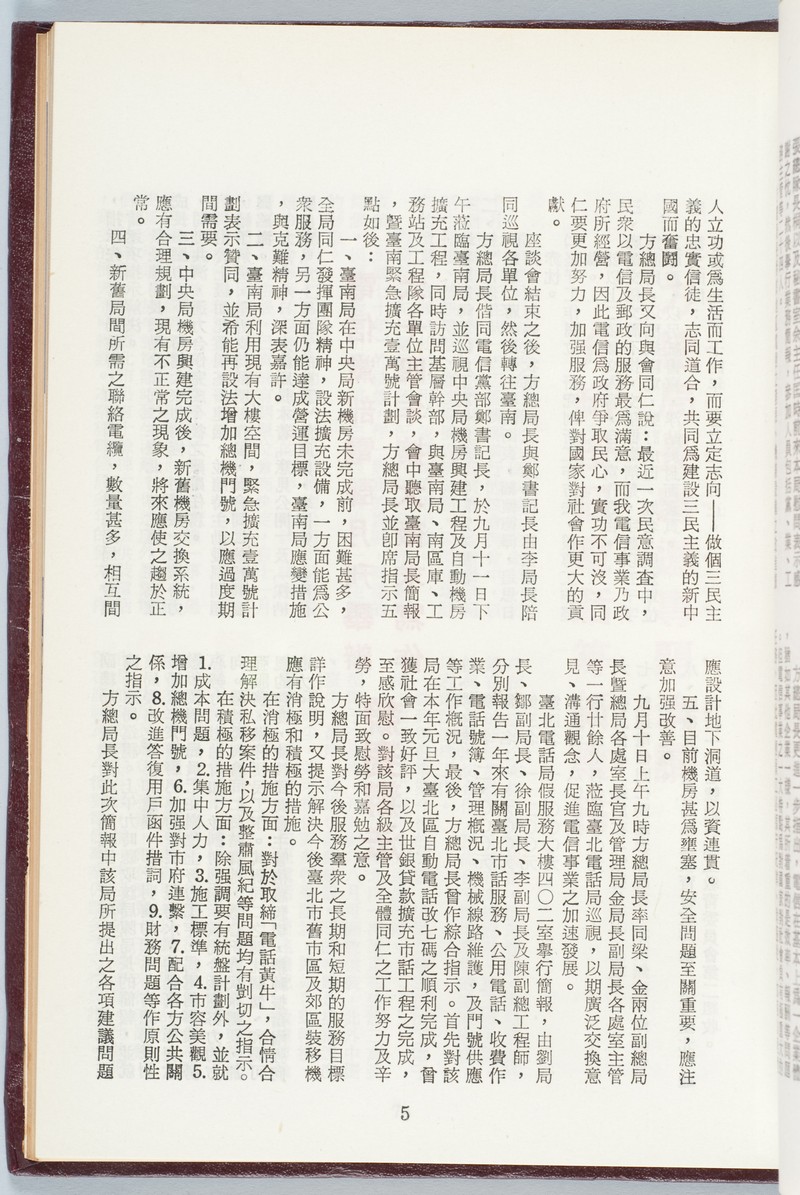 人立功或爲生活而工作，而要立定志向——做個三民主
義的忠實信徒，志同道合，共同爲建設三民主義的新中
國而奮鬪。
方總局長又向與會同仁說：最近一次民意調查中，
民衆以電信及郵政的服務最爲滿意，而我電信事業乃政
府所經營，因此電信爲政府爭取民心，實功不可沒，同
仁要更加努力，加强服務，俾對國家對社會作更大的貢
獻。
座談會結束之後，方總局長與鄭書記長由李局長陪
同巡視各單位，然後轉往臺南。
方總局長偕同電信黨部鄭書記長，於九月十一日下
午蒞臨臺南局，並巡視中央局機房興建工程及自動機房
擴充工程，同時訪問基層幹部，與臺南局、南區庫、工
務站及工程隊各單位主管會談，會中聽取臺南局長簡報
，暨臺南緊急擴充壹萬號計劃，方總局長並卽席指示五
點如後：
一、臺南局在中央局新機房未完成前，困難甚多，
全局同仁發揮團隊精神，設法擴充設備，一方面能爲公
衆服務，另一方面仍能達成營運目標，臺南局應變措施
，與克難精神，深表嘉許。
二、臺南局利用現有大樓空間，緊急擴充壹萬號計
劃表示贊同，並希能再設法增加總機門號，以應過度期
間需要。
三、中央局機房興建完成後，新舊機房交換系統，
應有合理規劃，現有不正常之現象，將來應使之趨於正
常。
四、新舊局間所需之聯絡電纜，數量甚多，相互間
應設計地下洞道，以資連貫。
五、目前機房甚爲壅塞，安全問題至關重要，應注
意加强改善。
九月十日上午九時方總局長率同梁、金兩位副總局
長暨總局各處室長官及管理局金局長副局長各處室主管
等一行廿餘人，蒞臨臺北電話局巡視，以期廣泛交換意
見、溝通觀念，促進電信事業之加速發展。
臺北電話局假服務大樓四〇二室擧行簡報，由劉局
長、鄒副局長、徐副局長、李副局長及陳副總工程師，
分別報告一年來有關臺北市話服務、公用電話、收費作
業、電話號簿、管理槪況、機械線路維護，及門號供應
等工作槪況，最後，方總局長曾作綜合指示。首先對該
局在本年元旦大臺北區自動電話改七碼之順利完成，曾
獲社會一致好評，以及世銀貸款擴充市話工程之完成，
至感欣慰。對該局各級主管及全體同仁之工作努力及辛
勞，特面致慰勞和嘉勉之意。
方總局長對今後服務羣衆之長期和短期的服務目標
詳作說明，又提示解決今後臺北市舊市區及郊區裝移機
應有消極和積極的措施。
在消極的措施方面：對於取締「電話黃牛」，合情合
理解決私移案件，以及整肅風紀等問題均有剴切之指示。
在積極的措施方面：除强調要有統盤計劃外，並就
1.成本問題，2.集中人力，3.施工標準，4.市容美觀5.
增加總機門號，6.加强對市府連繫，7.配合各方公共關
係，8.改進答復用戶函件措詞，9.財務問題等作原則性
之指示。
方總局長對此次簡報中該局所提出之各項建議問題
5